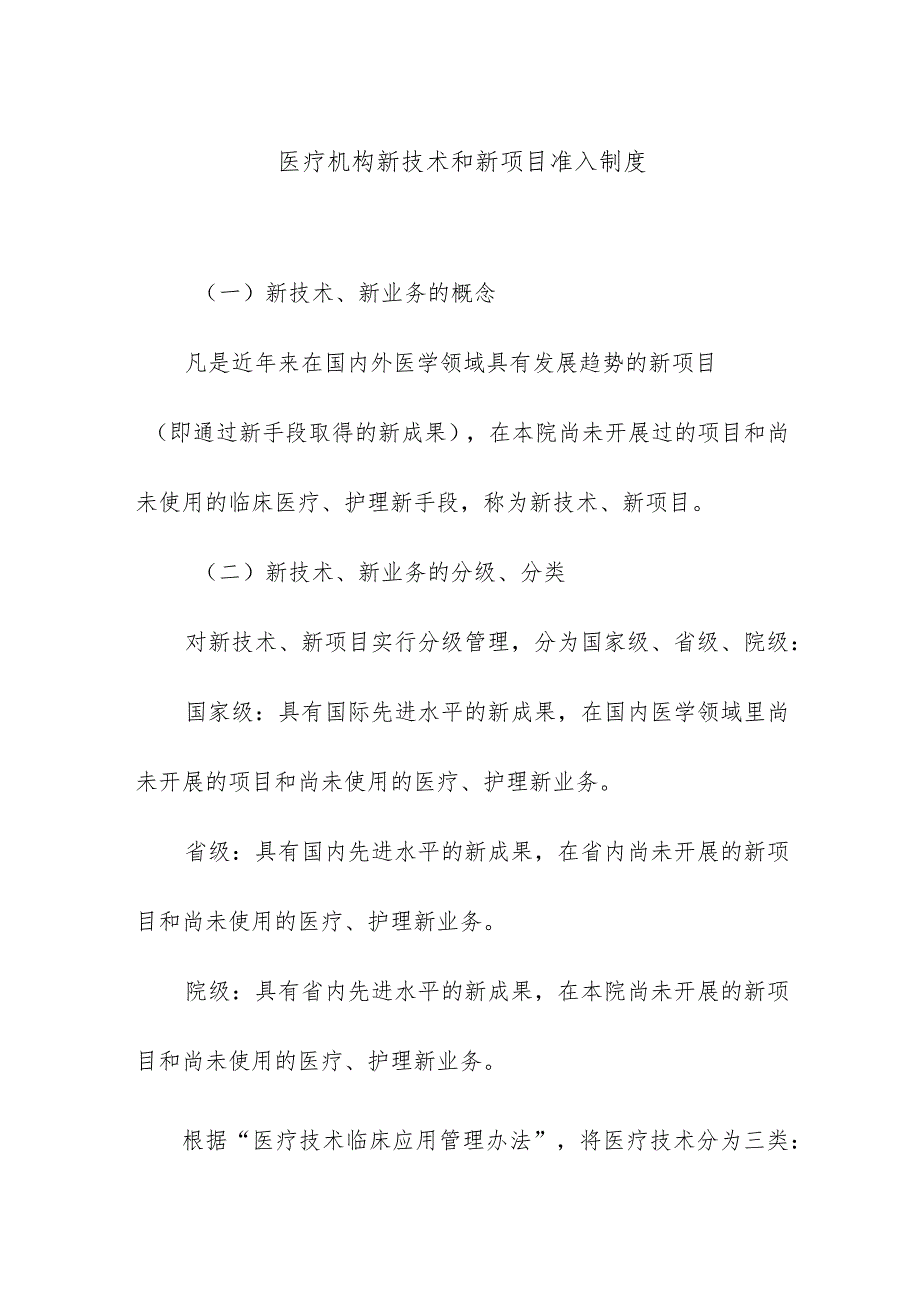 医疗机构新技术和新项目准入制度
（一）新技术、新业务的概念
凡是近年来在国内外医学领域具有发展趋势的新项目
（即通过新手段取得的新成果），在本院尚未开展过的项目和尚
未使用的临床医疗、护理新手段，称为新技术、新项目。
（二）新技术、新业务的分级、分类
对新技术、新项目实行分级管理，分为国家级、省级、院级：
国家级：具有国际先进水平的新成果，在国内医学领域里尚
未开展的项目和尚未使用的医疗、护理新业务。
省级：具有国内先进水平的新成果，在省内尚未开展的新项
目和尚未使用的医疗、护理新业务。
院级：具有省内先进水平的新成果，在本院尚未开展的新项
目和尚未使用的医疗、护理新业务。
根据“医疗技术临床应用管理办法”，将医疗技术分为三类：